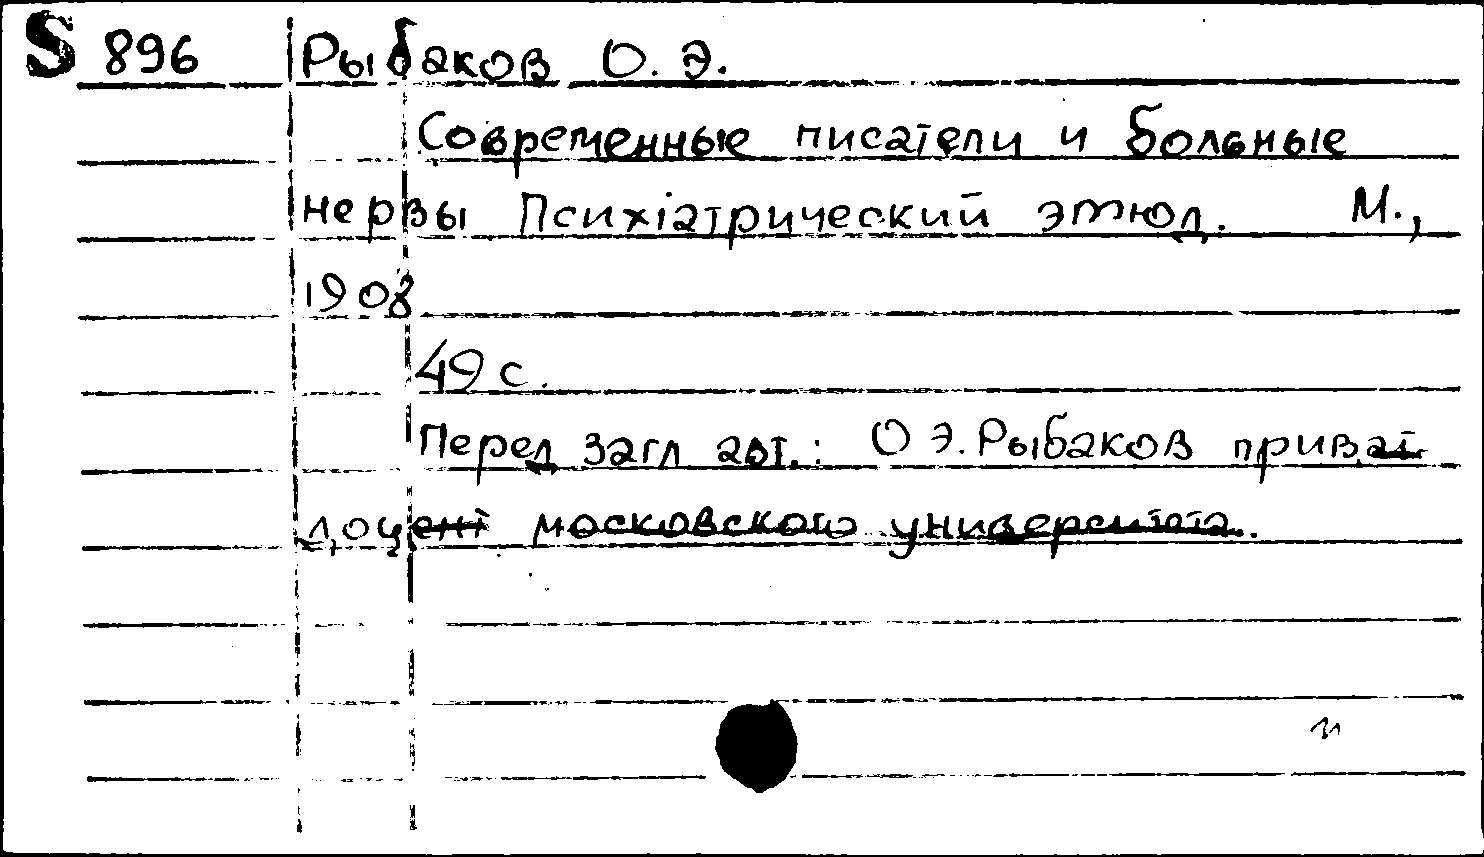 S 896 Рыбаков О. Э.
Современные писатели и больные
нервы Психіатрический этюд. М.,
1908
49 с.
Перед загл авт.: О Э. Рыбаков приват
доцент московского университета.